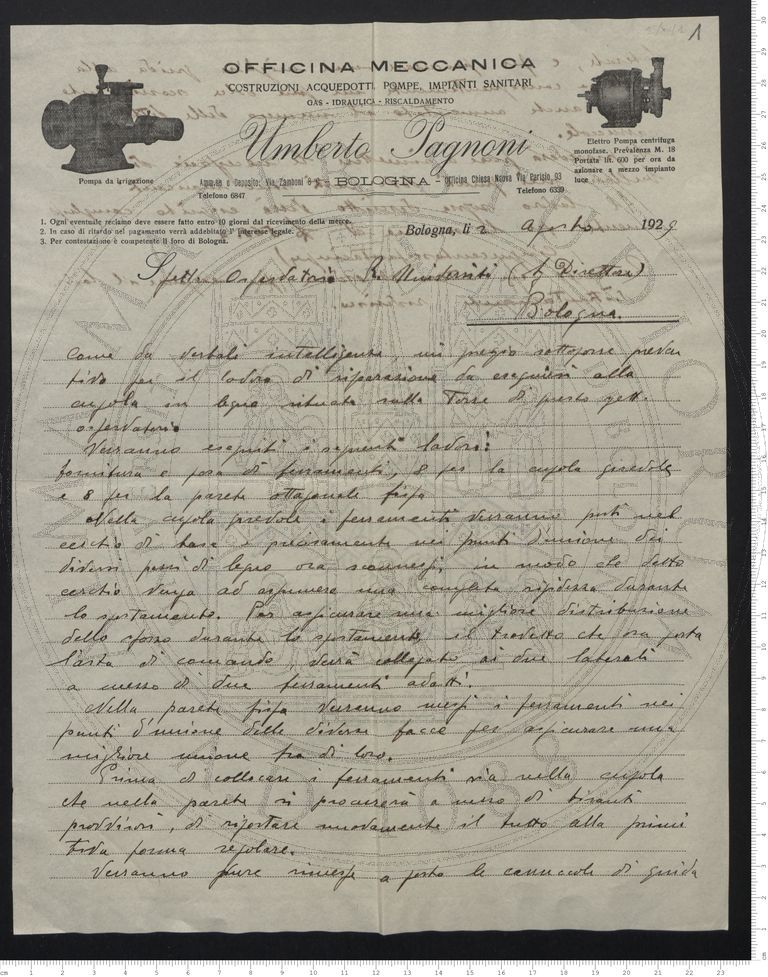 1
OFFICINA MECCANICA
COSTRUZIONI ACQUEDOTTI, POMPE, IMPIANTI SANITARI
GAS - IDRAULICA - RISCALDAMENTO
Umberto Pagnoni
Pompa da irrigazione
Ammin. e Deposito: Via Zamboni 8 - BOLOGNA - Officina Chiesa Nuova Via Parisio, 93
Telefono 6847 Telefono 6339
Elettro Pompa centrifuga
monofase. Prevalenza M. 18
Portata lit. 600 per ora da
azionare a mezzo impianto
luce
1. Ogni eventuale reclamo deve essere fatto entro 10 giorni dal ricevimento della merce.
2. In caso di ritardo nel pagamento verrà addebitato l'interesse legale.
3. Per contestazione è competente il foro di Bologna.
Bologna, li 2 Agosto 1929
Spett. Osservatorio R. Università (Sig. Direttore)
Bologna.
Come da verbali intelligenze, mi pregio sottoporre preven
tivo per il lavoro di riparazione da eseguirsi alla
cupola in legno situata sulla Torre di questo spett.
osservatorio
Verranno eseguiti i seguenti lavori:
fornitura e posa di ferramenti, 8 per la cupola girevole
e 8 per la parete ottagonale fissa
Nella cupola girevole i ferramenti verranno posti nel
cerchio di base e precisamente nei punti d'unione dei
diversi pezzi di legno ora sconnessi, in modo che detto
cerchio venga ad assumere una completa rigidezza durante
lo spostamento. Per assicurare una migliore distribuzione
dello sforzo durante lo spostamento, il travetto che ora porta
l'asta di comando, verrà collegato ai due laterali
a mezzo di due ferramenti adatti.
Nella parete fissa verranno messi i ferramenti nei
punti d'unione delle diverse facce per assicurare una
migliore unione fra di loro.
Prima di collocare i ferramenti sia nella cupola
che nella parete si procurerà a mezzo di tiranti
provvisori, di riportare nuovamente il tutto alla primi
tiva forma regolare.
Verranno pure rimesse a posto le carrucole di guida